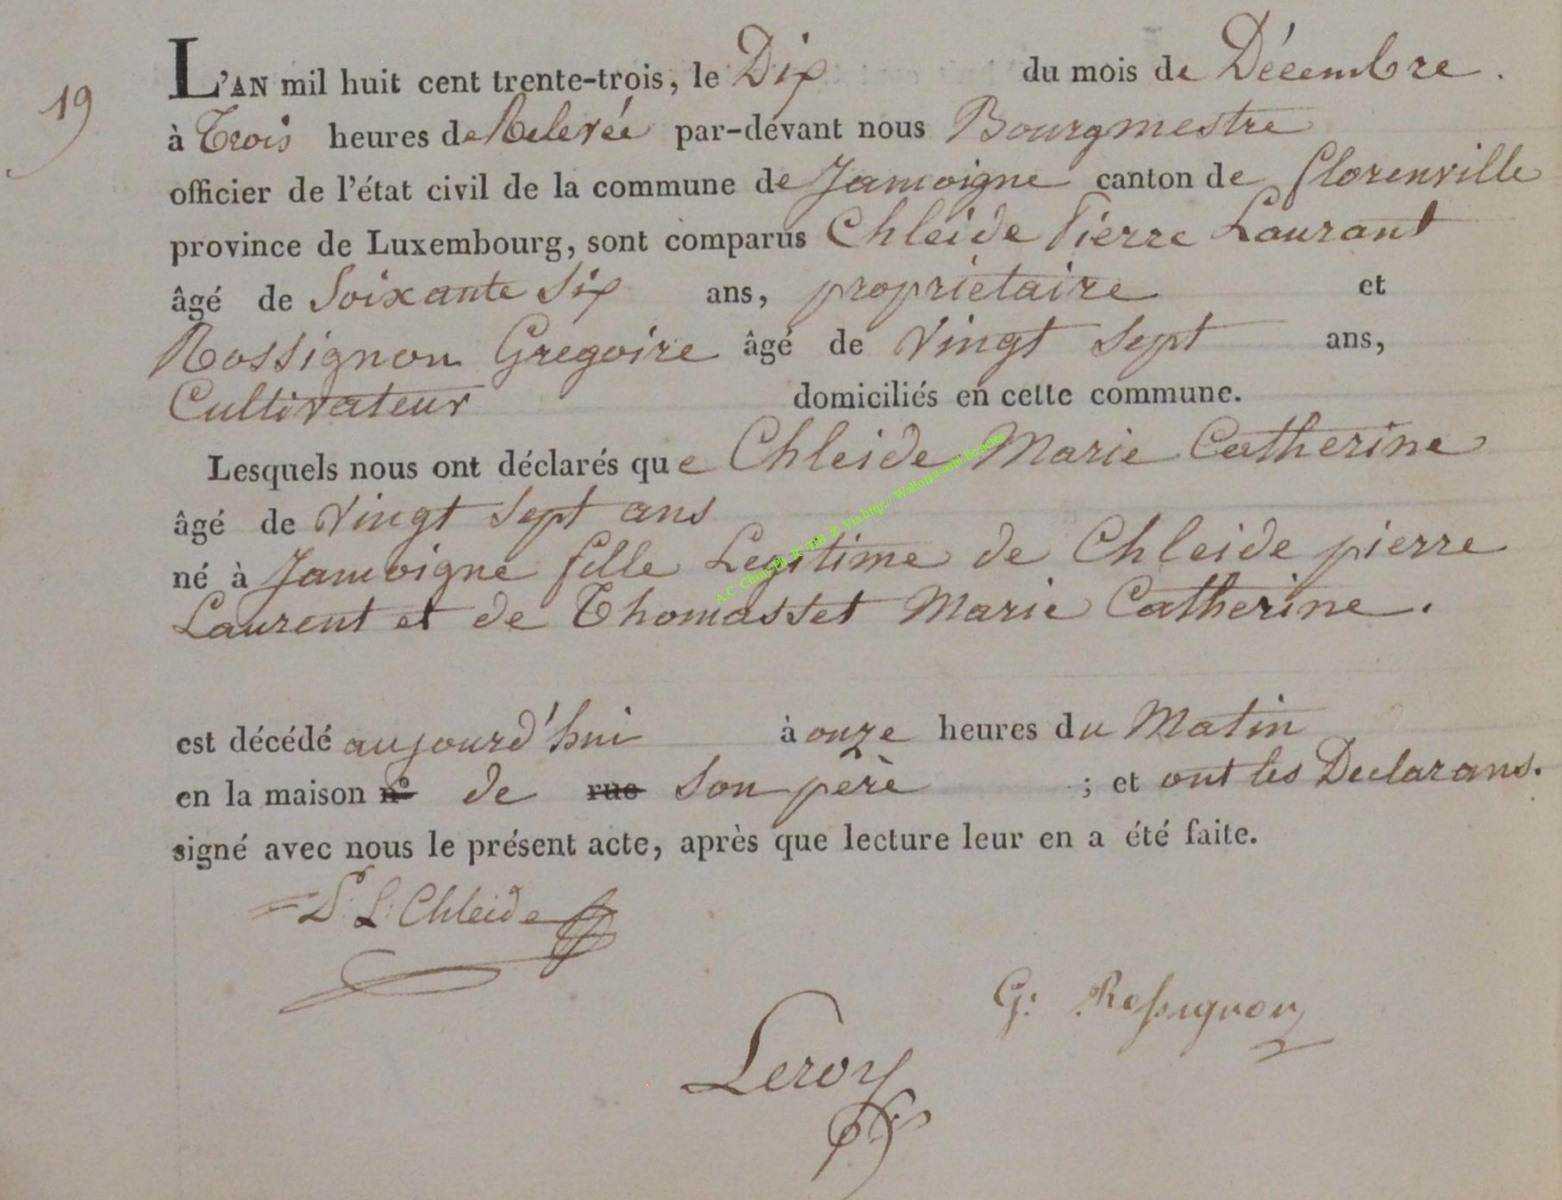 19
L'AN mil huit cent trente-trois, le Dix du mois de Décembre.
à Trois heures de Relevée par-dévant nous Bourgmestre
officier de l'état civil de la commune de Jamoigne canton de florenville
province de Luxembourg, sont comparus Chleide Pierre Laurant
âgé de Soixante Six ans, propriétaire et
Rossignon Gregoire âgé de Vingt Sept ans,
Cultivateur domiciliés en cette commune.
Lesquels nous ont déclarés que Chleide Marie Catherine
âgé de Vingt Sept ans
né à Jamoigne fille Legitime de Chleide pierre
Laurent et de Thomasset Marie Catherine.
est décédé aujourd'hui à onze heures du Matin
en la maison n° de rue Son pére ; et ont les Declarans.
signé avec nous le présent acte, après que lecture leur en a été faite.
P. L. Chleide
G: Rossignon
Leroy